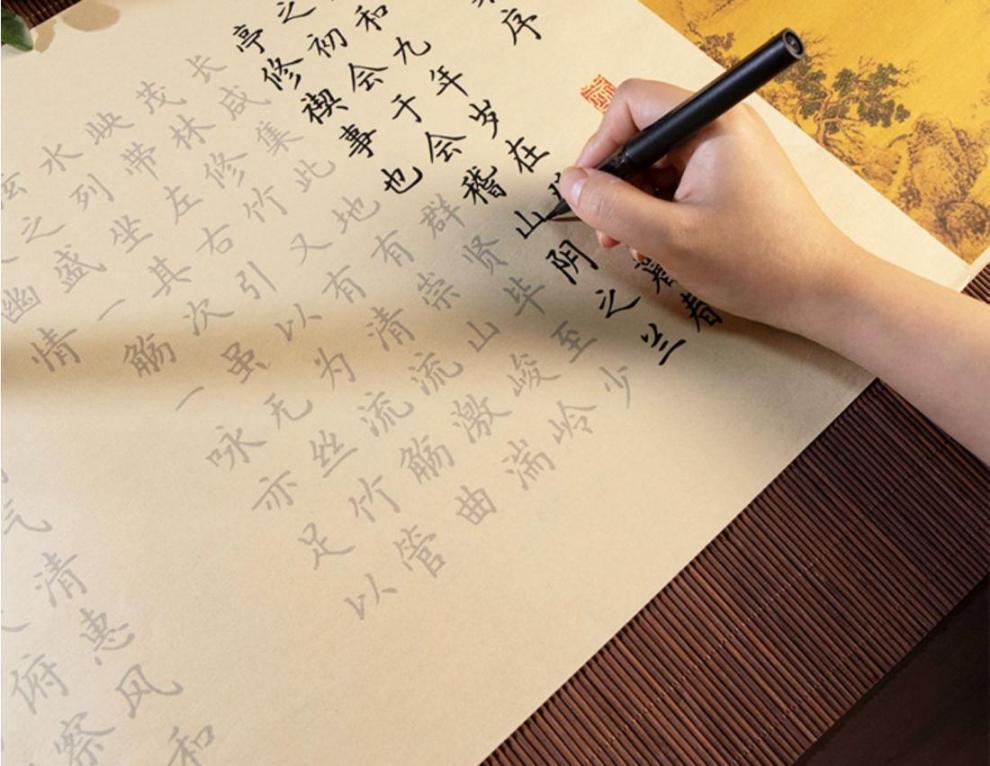 序
和九年岁在春
之初会于会稽山阴之兰
亭修禊事也群贤毕至少
长咸集此地有崇山峻岭
茂林修竹又有清流激湍
映带左右引以为流觞曲
水列坐其次虽无丝竹管
弦之盛一觞一咏亦足以
幽情
气清惠风和
俯察